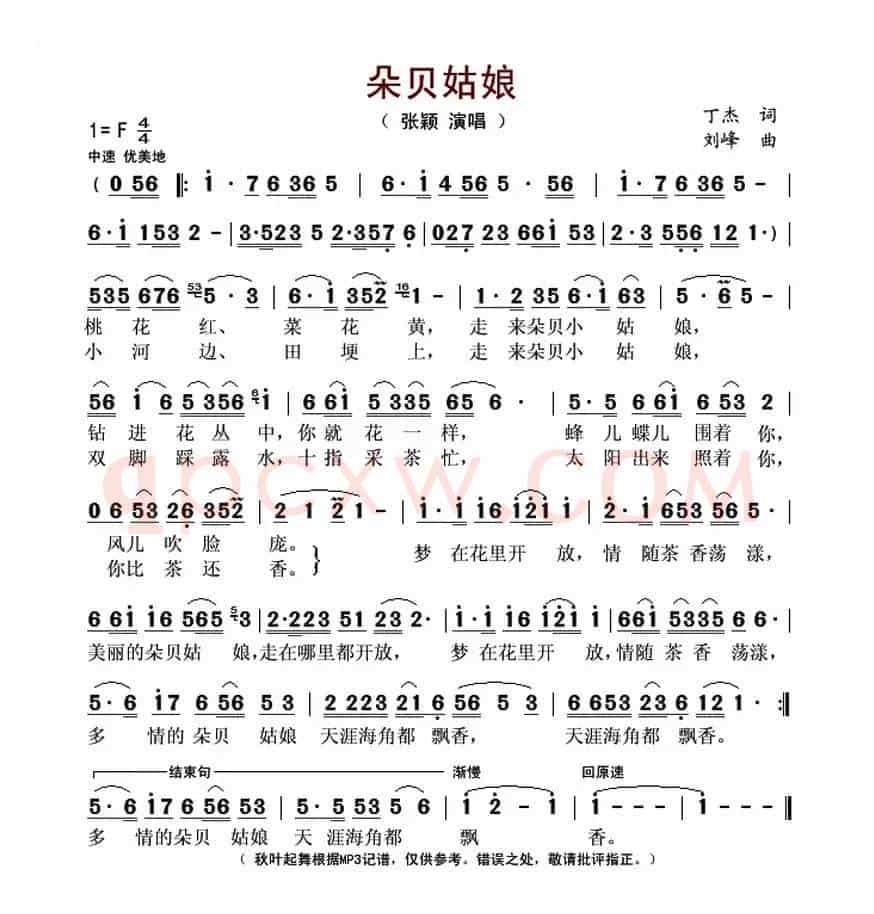 朵贝姑娘
( 张颖 演唱 )
丁杰 词
刘峰 曲
1= F 4/4
中速 优美地
( 0 56 ‖: i · 7 6 36 5 | 6 · i 4 56 5 · 56 | i · 7 6 36 5 - |
6 · i 153 2 - | 3·523 5 2·357 6 | 027 23 661 53 | 2·3 556 12 1·) |
535 676 53 5 · 3 | 6 · i 352 16 1 - | 1 · 2 35 6·i 63 | 5 · 6 5 - |
桃 花 红、 菜 花 黄, 走 来朵贝小 姑 娘,
小 河 边、 田 埂 上, 走 来朵贝小 姑 娘,
56 i 6 5 356 6 i | 6 6i 5335 65 6 · | 5 · 5 6 6i 6 53 2 |
钻 进 花 丛 中, 你 就 花 一 样, 蜂 儿 蝶儿 围着 你,
双 脚 踩 露 水, 十 指 采 茶 忙, 太 阳 出来 照着 你,
qpcxw.COM
0 6 53 26 352 | 2 1 2 1 - | i · i i6 i2i i | 2 · i 653 56 5 · |
风儿 吹 脸 庞。
梦 在花里开 放, 情 随茶 香荡 漾,
你比 茶 还 香。
6 6i i6 565 5 3 | 2·223 51 23 2· | i · i i6 i2i i | 66i 5335 6 6· |
美丽的朵贝姑 娘,走在哪里都开放, 梦 在花里开 放,情随 茶 香 荡漾,
5 · 6 i7 6 56 5 3 | 2 223 21 6 5 5 3 | 6 653 23 6 12 1 · :‖
多 情的 朵贝 姑娘 天涯海角都 飘香, 天涯海角都 飘香。
结束句 渐慢 回原速
5 · 6 i7 6 56 53 | 5 · 3 2 35 5 6 | i 2 - i | i - - - ‖
多 情的朵贝 姑娘 天 涯海角都 飘 香。
( 秋叶起舞根据MP3记谱，仅供参考。错误之处，敬请批评指正。)